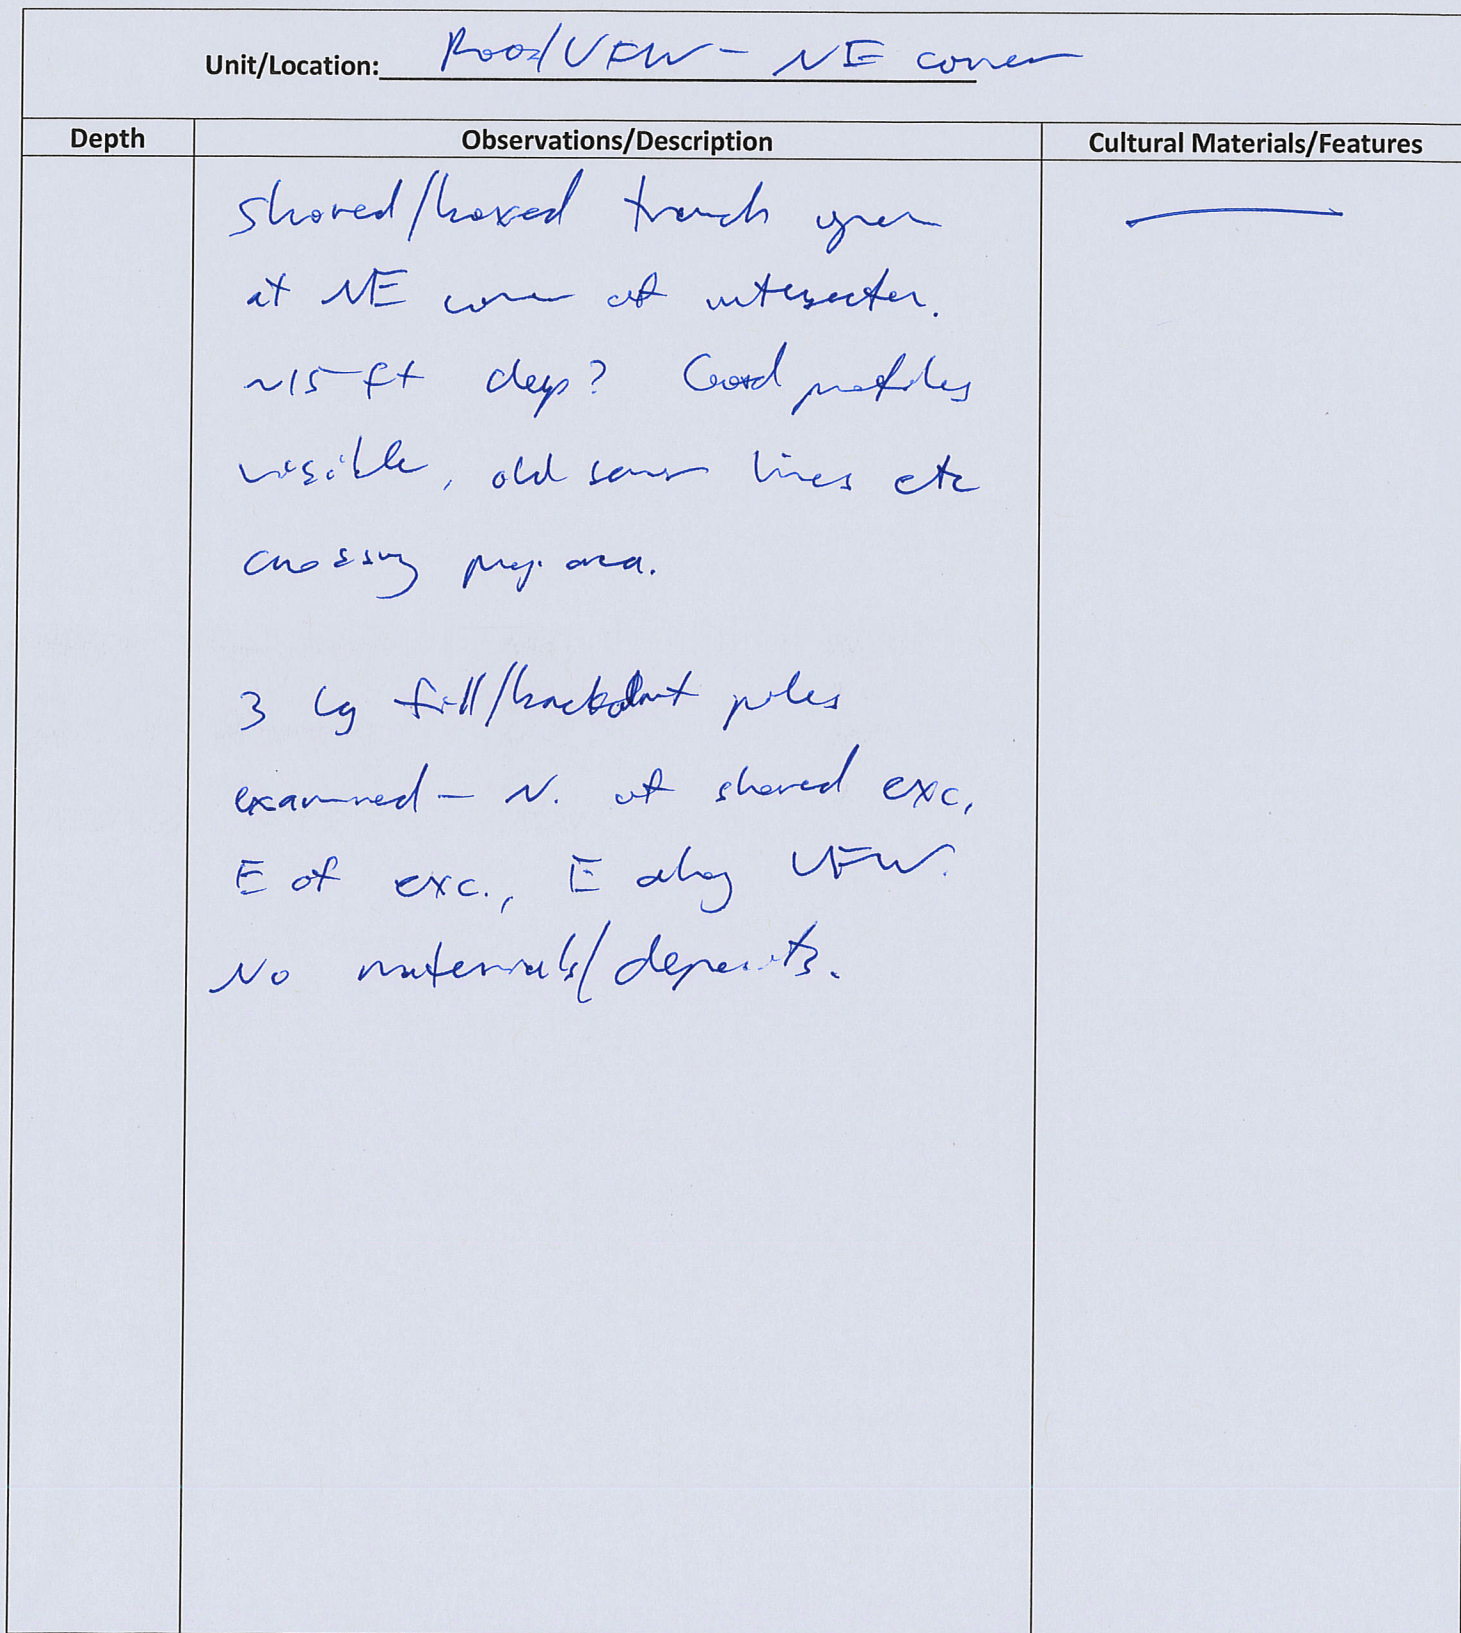 Unit/Location: Roos/VFW - NE corner
Depth Observations/Description Cultural Materials/Features
Shored/boxed trench open
at NE corner of intersection.
~15 ft deep? Good profiles
visible, old sewer lines etc
crossing proj. area.
3 lg fill/backdirt piles
examined - N. of shored exc,
E of exc., E along VFW.
No materials/deposits.